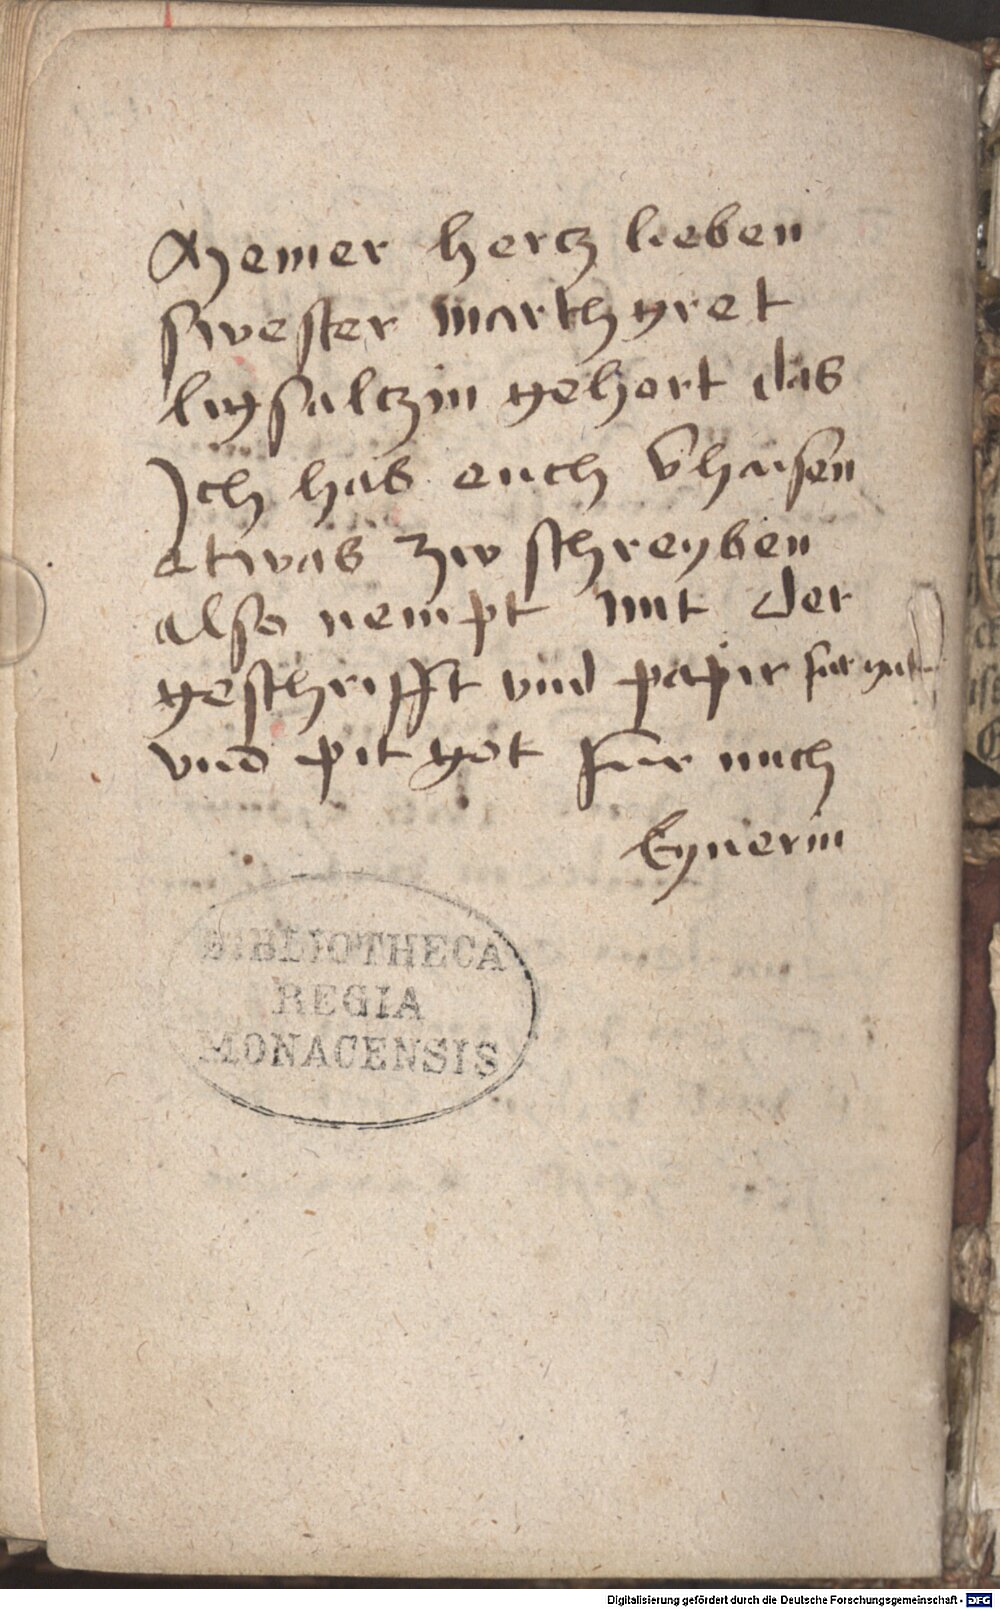 Meiner hercz lieben
swester marthgret
ligsalczin gehort das
Ich hab euch v̄haisen
etwas zw schreyben
also nempt mit der
geschrifft vnd papir fur gut
vnd pit got fur mich
Eynerin
BIBLIOTHECA
REGIA
MONACENSIS
Digitalisierung gefördert durch die Deutsche Forschungsgemeinschaft - DFG